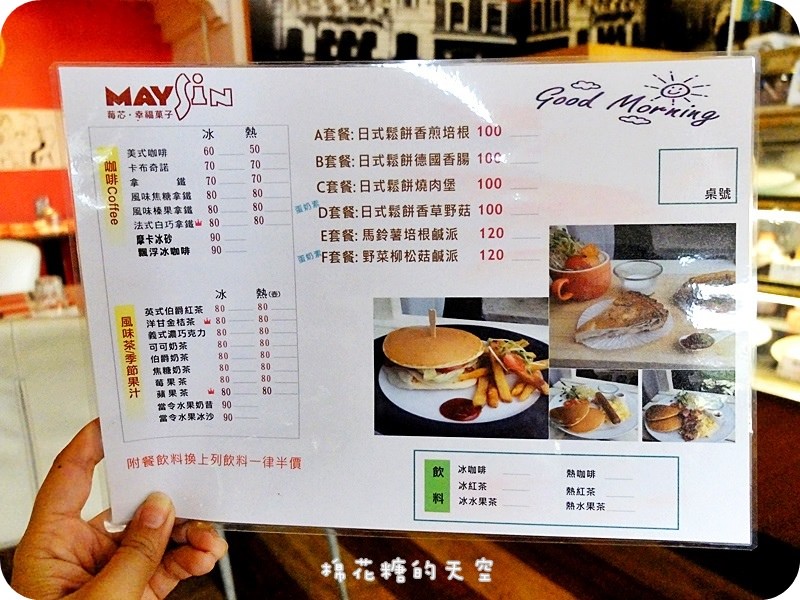 MAYSiN
莓芯・幸福菓子
Good Morning
桌號
咖啡Coffee
冰 熱
美式咖啡 60 50
卡布奇諾 70 70
拿鐵 70 70
風味焦糖拿鐵 80 80
風味榛果拿鐵 80 80
法式白巧拿鐵 80 80
摩卡冰砂 90
飄浮冰咖啡 90
風味茶/季節果汁
冰 熱(壺)
英式伯爵紅茶 80 80
洋甘金桔茶 80 80
義式濃巧克力 80 80
可可奶茶 80 80
伯爵奶茶 80 80
焦糖奶茶 80 80
莓果茶 80 80
蘋果茶 80 80
當令水果奶昔 90
當令水果冰沙 90
附餐飲料換上列飲料一律半價
A套餐:日式鬆餅香煎培根 100
B套餐:日式鬆餅德國香腸 100
C套餐:日式鬆餅燒肉堡 100
蛋奶素 D套餐:日式鬆餅香草野菇 100
E套餐:馬鈴薯培根鹹派 120
蛋奶素 F套餐:野菜柳松菇鹹派 120
飲料
冰咖啡 熱咖啡
冰紅茶 熱紅茶
冰水果茶 熱水果茶
棉花糖的天空